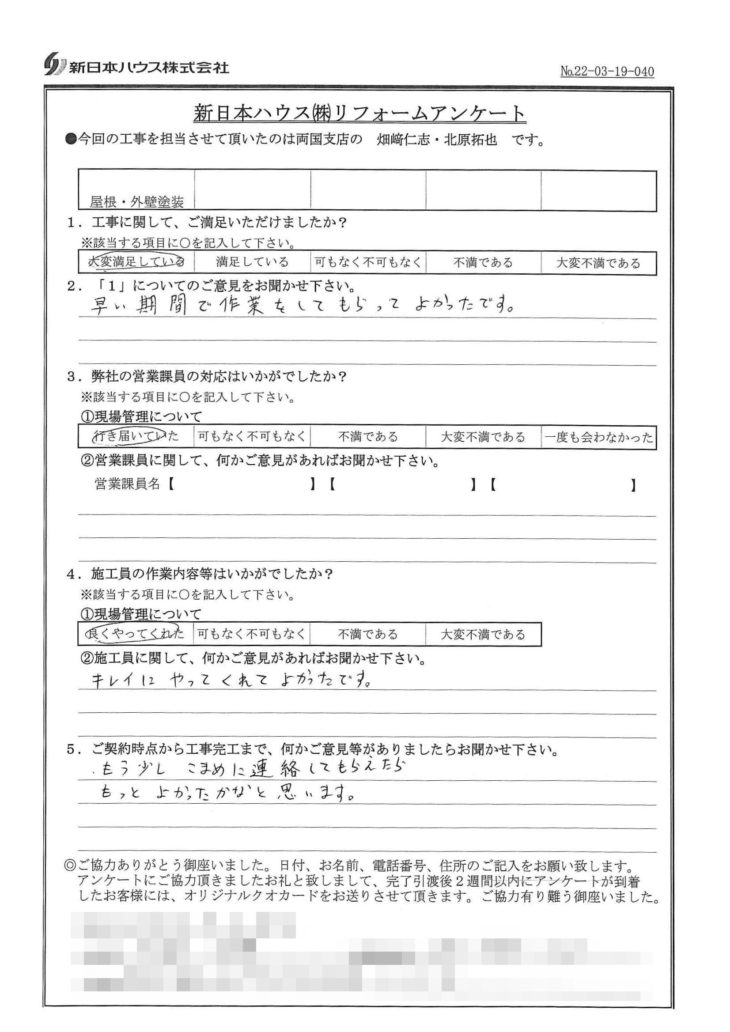 新日本ハウス株式会社
№22-03-19-040
新日本ハウス㈱リフォームアンケート
●今回の工事を担当させて頂いたのは両国支店の 畑﨑仁志・北原拓也 です。
屋根・外壁塗装
1．工事に関して、ご満足いただけましたか？
※該当する項目に〇を記入して下さい。
大変満足している 満足している 可もなく不可もなく 不満である 大変不満である
2．「1」についてのご意見をお聞かせ下さい。
早い期間で作業をしてもらってよかったです。
3．弊社の営業課員の対応はいかがでしたか？
※該当する項目に〇を記入して下さい。
①現場管理について
行き届いていた 可もなく不可もなく 不満である 大変不満である 一度も会わなかった
②営業課員に関して、何かご意見があればお聞かせ下さい。
営業課員名【 】【 】【 】
4．施工員の作業内容等はいかがでしたか？
※該当する項目に〇を記入して下さい。
①現場管理について
良くやってくれた 可もなく不可もなく 不満である 大変不満である
②施工員に関して、何かご意見があればお聞かせ下さい。
キレイにやってくれてよかったです。
5．ご契約時点から工事完工まで、何かご意見等がありましたらお聞かせ下さい。
もう少しこまめに連絡してもらえたら
もっとよかったかなと思います。
◎ご協力ありがとう御座いました。日付、お名前、電話番号、住所のご記入をお願い致します。
アンケートにご協力頂きましたお礼と致しまして、完了引渡後2週間以内にアンケートが到着
したお客様には、オリジナルクオカードをお送りさせて頂きます。ご協力有り難う御座いました。